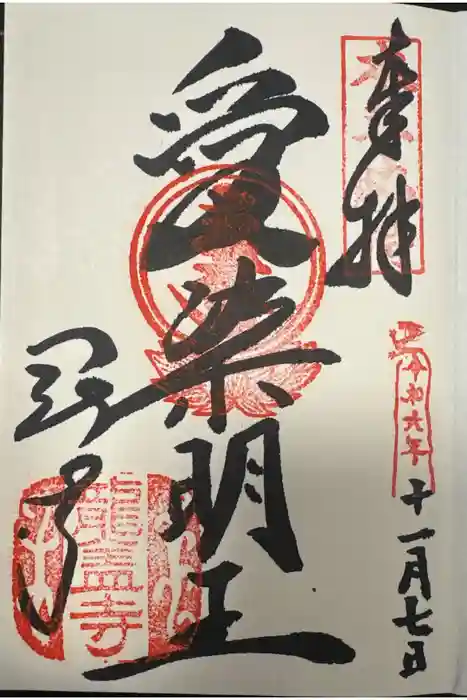 奉拝
令和六年十一月七日
愛染明王
岡寺
龍蓋寺